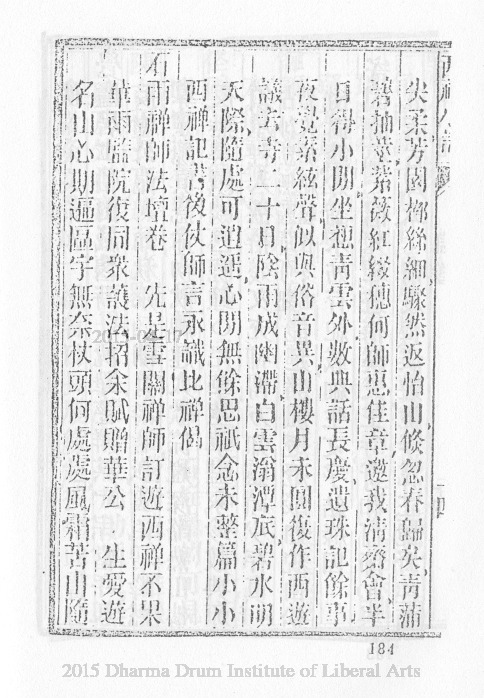 尖柔芳園柳絲細驟然返怡山倏忽春歸矣青蒲
碧抽莖紫薇紅綴穗何師惠佳章邀我清齋會半
日得小閒坐想青雲外數典話長慶遺珠記餘事
夜覺素絃聲似與俗音異山樓月未圓復作西遊
議去寺二十日陰雨成幽滯白雲滃潭底碧水明
天際隨處可逍遥心閒無餘思祇念未整篇小小
西禪記書後仗師言永識比禪偈
石雨禪師法壇卷 先是雪關禪師訂遊西禪不果
華雨監院復同衆議法招余賦贈華公 生愛遊
名山心期遍區宇無奈杖頭何處處風霜苦山隨
184
2015 Dharma Drum Institute of Liberal Arts